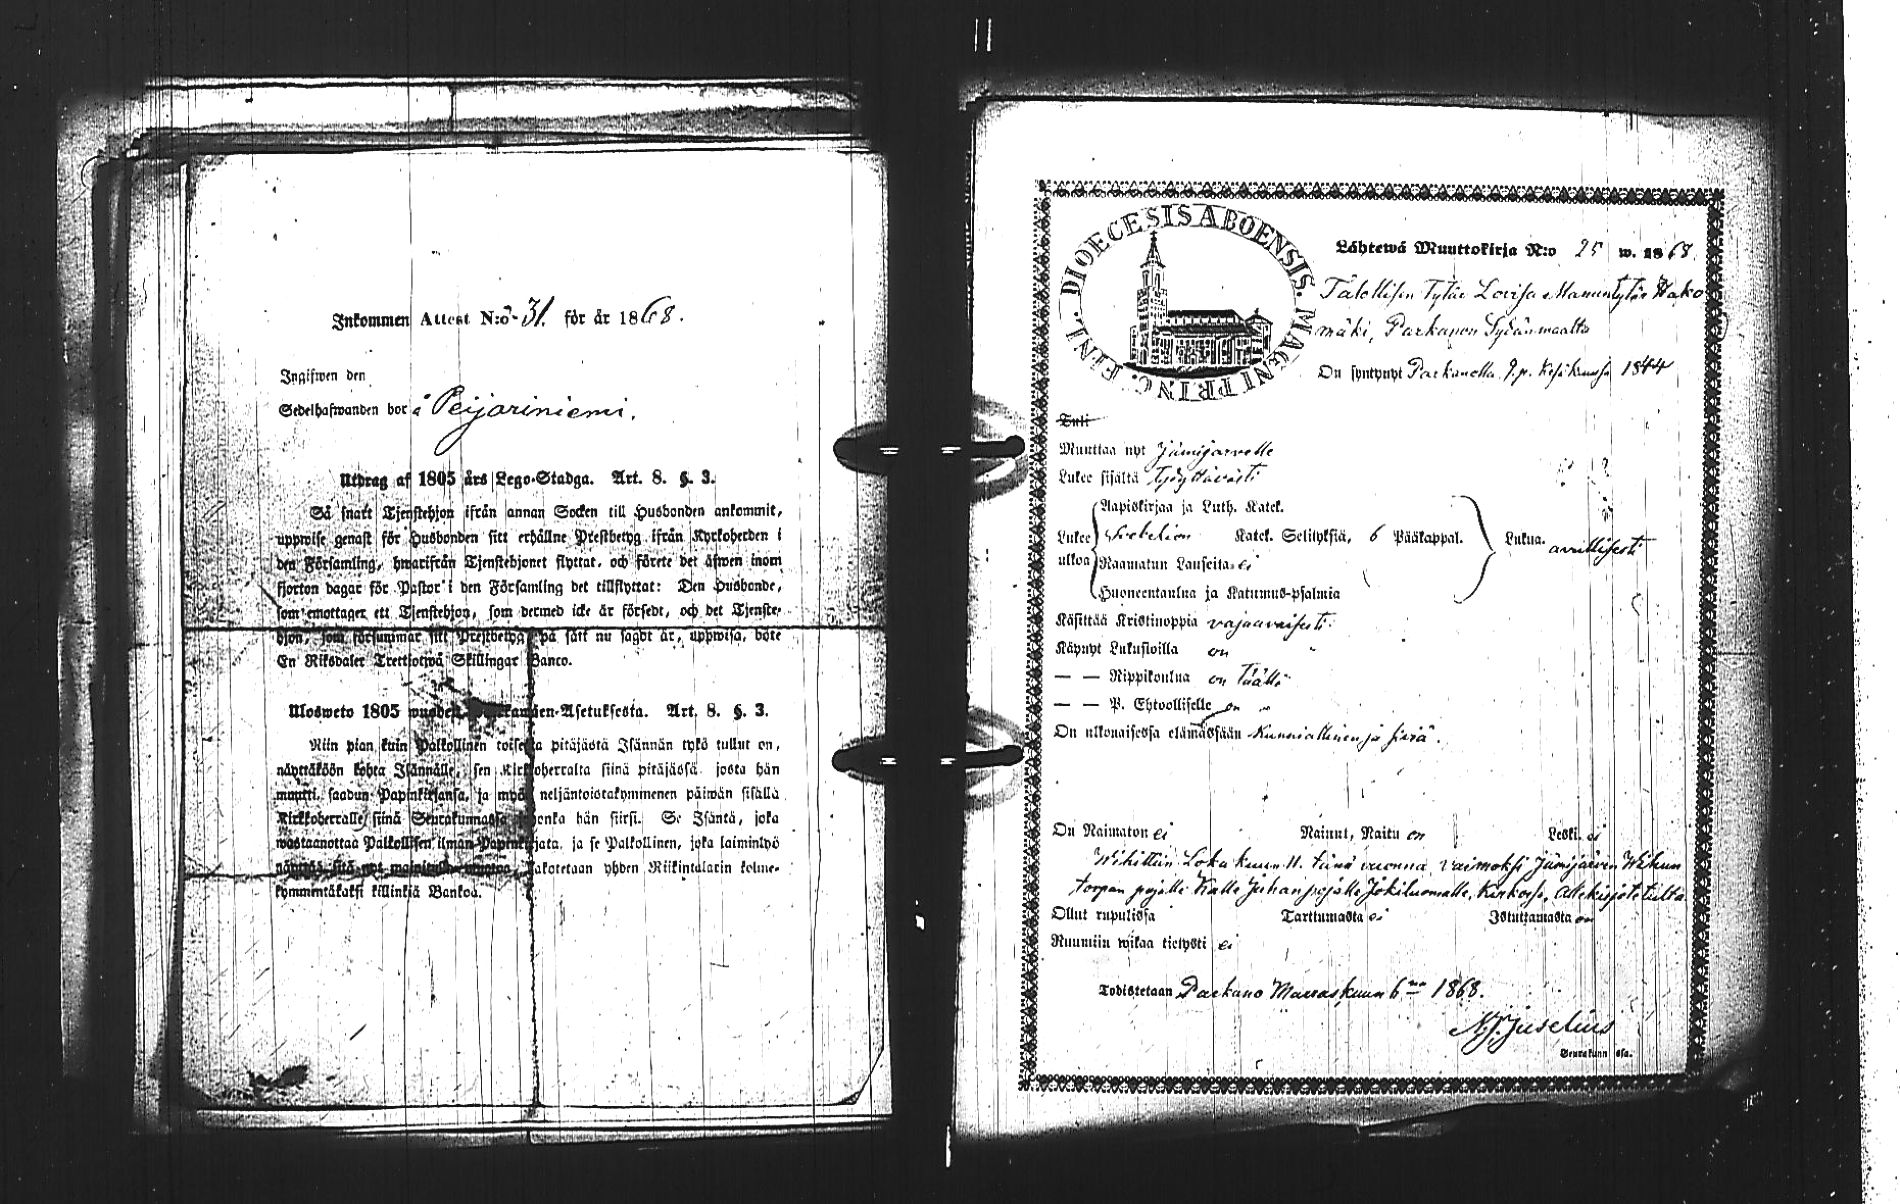 Inkommen Attest N:o 31. för år 1868.
Ingifwen den
Sedelhafwanden bor å Peijariniemi.
Utdrag af 1805 års Lego-Stadga. Art. 8. §. 3.
Så snart Tjenstehjon ifrån annan Socken till Husbonden ankommit,
uppwise genast för Husbonden sitt erhållne Prestbetyg ifrån Kyrkoherden i
den Församling, hwarifrån Tjenstehjonet flyttat, och förete det äfwen inom
fjorton dagar för Pastor i den Församling det tillflyttat: Den Husbonde,
som emottager ett Tjenstehjon, som dermed icke är försedt, och det Tjenste-
hjon, som försummar sitt Prestbetyg på sätt nu sagdt är, uppwisa, böte
En Riksdaler Trettiotwå Skillingar Banco.
Ulosweto 1805 wuoden Asetuksesta. Art. 8. §. 3.
Niin pian kuin Palkollinen toisesta pitäjästä Isännän tykö tullut on,
näyttäköön kohta Isännälle, sen Kirkkoherralta siinä pitäjässä josta hän
muutti, saadun Papinkirjansa, ja myös neljäntoistakymmenen päiwän sisällä
Kirkkoherralle siinä Seurakunnassa johonka hän siirsi. Se Isäntä, joka
wastaanottaa Palkollisen ilman Papinkirjata, ja se Palkollinen, joka laiminlyö
näyttää sitä nyt mainitulla muotoa, sakotetaan yhden Riikintalarin kolme-
kymmentäkaksi killinkiä Bankoa.
DIOECESIS ABOENSIS. MAGNI PRINC. FINL.
Lähtewä Muuttokirja N:o 25 w. 1868.
Talollisen Tytär Lovisa Manuntytär Hako
mäki, Parkanon Sydänmaalta
On syntynyt Parkanolla 9.p. Kesäkuussa 1844
Tuli
Muuttaa nyt Jämijärvelle
Lukee sisältä tyydyttävästi
Aapiskirjaa ja Luth. Katek.
Lukee ulkoa Svebelion Katek. Selityksiä, 6 Pääkappal. Lukua. avullisesti
Raamatun Lauseita ei
Huoneentaulua ja Katumus-psalmia
Käsittää Kristinoppia vajaavaisesti.
Käynyt Lukusioilla on
— — Rippikoulua on täällä
— — P. Ehtoollisella on "
On ulkonaisessa elämässään Kunniallinen ja siivo.
On Naimaton ei Nainut, Naitu on Leski. ei
Wihittiin Loka kuun 11. tänä vuonna vaimoksi Jämijärven Wihun
torpan pojalle Kalle Juhanpojalle Jokiluomalle, Kirkossa, allekirjoitetulta
Ollut rupulissa Tarttumasta ei Istuttamasta on
Ruumiin wikaa tietysti ei
Todistetaan Parkano Marraskuun 6 na 1868.
N. J. Juselius
Seurakunn ssa.